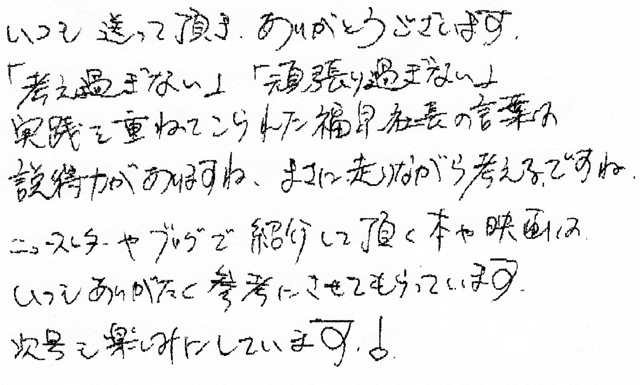 いつも送って頂き、ありがとうございます。
「考え過ぎない」「頑張り過ぎない」
実践を重ねてこられた福早社長の言葉は
説得力がありますね、まさに走りながら考える、ですね。
ニュースレターやブログで紹介して頂く本や映画は
いつもありがたく参考にさせてもらっています。
次号も楽しみにしています。!